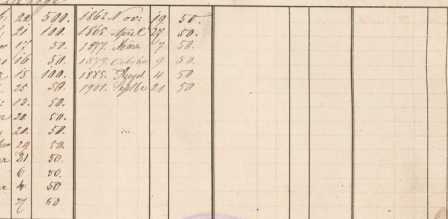 24 500. 1862 Nov. 19 50.
21 100. 1865 April 27 50.
17 50. 1877. Mars 7 50
16 50. 1879. October 9 50.
18 100. 1885. 4 50
25 50. 1901. Septbr 20 50
12. 50.
20. 50.
20. 50.
29 50.
21 50.
6 50.
4 50
27 50